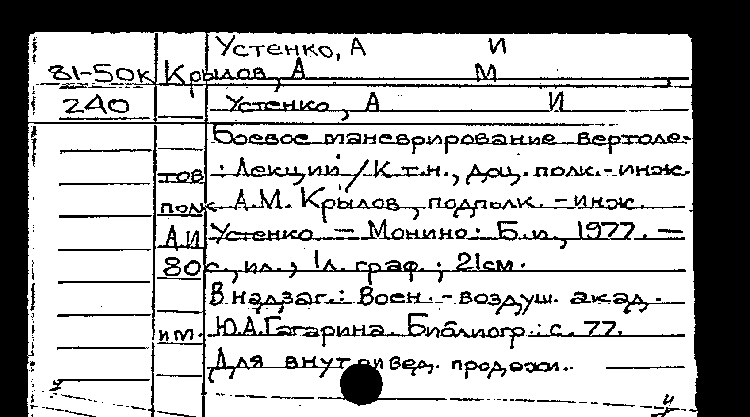 Устенко, А И
81-50к Крылов, А М
240 Устенко, А И
Боевое маневрирование вертоле-
тов : Лекций / К.т.н., доц. полк.-инж.
полк А.М. Крылов, подполк. - инж.
А.И Устенко. — Монино : Б.и., 1977. —
80 с., ил.; 1л. граф. ; 21см.
В надзаг.: Воен. - воздуш. акад.
им. Ю.А.Гагарина. Библиогр.: с. 77.
Для внутривед. продажи.